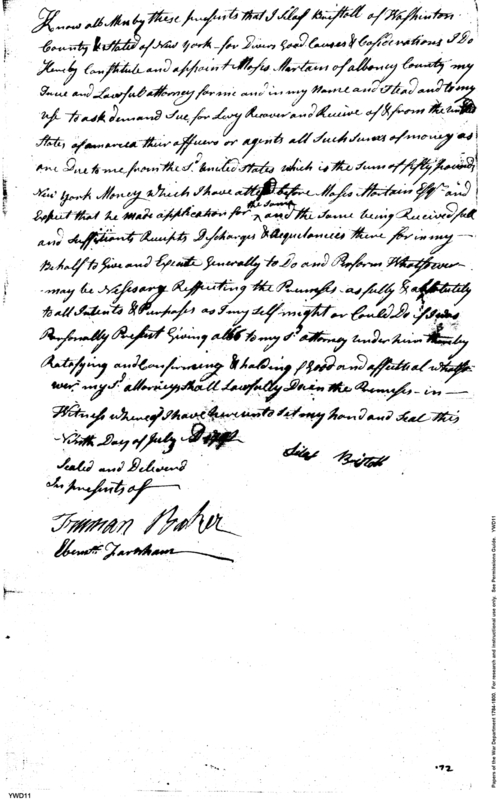 Know all Men by these presents that I Silas Bristoll of Washinton
County & State of New York for Divers Good Causes & Cosiderations I Do
Hereby Constitute and appoint Moses Martain of albaney County my
True and Lawfull attorney for me and in my Name and Stead and to my
use to ask demand Sue for Levy Recover and Receive of & from the united
States of amaraca their affucers or agents all Such Sumes of money as
are Due to me from the Sd. united States which is the Sum of fifty pounds
New York Money which I have before Moses Martain Esqr. and
Expect that he made application for the same and the Same being Received full
and Suffitients Receipts Discharges & acquitances there for in my
Behalf to Give and Execute Generally to Do and Perform Whatsoever
may be Nessecary Respecting the Premises as fully & absolutely
to all Intents & Purposes as I my self might or Could Do if I was
Personally Present Giving also to my Sd. attorney under him thereby
Ratefying and Confirming & holding Good and affectual whatso
ever my Sd. attorney Shall Lawfully Do in the Premises in
Witness whereof I have hereunto Set my hand and Seal this
Ninth Day of July
Silas Bristoll
Sealed and Deliverd
In presents of
Truman Baker
Ebenr. Farnham
'72
YWD11
Papers of the War Department 1784-1800. For research and instructional use only. See Permissions Guide. YWD11